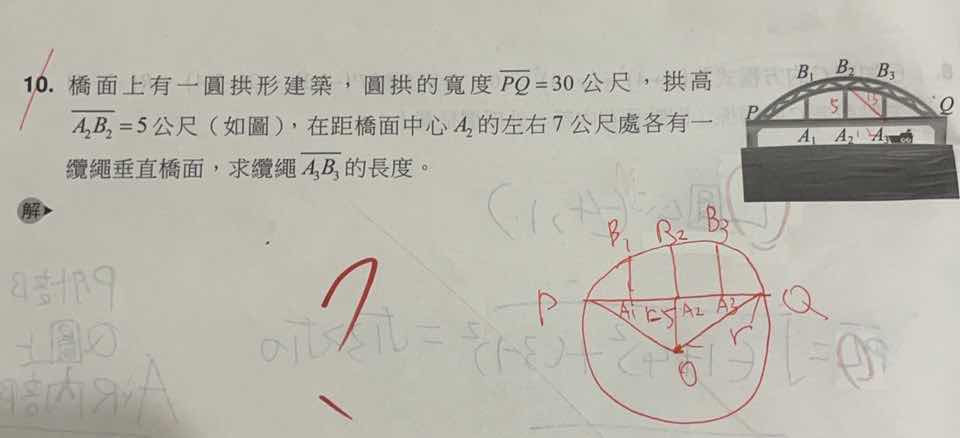 10. 橋面上有一圓拱形建築，圓拱的寬度 PQ = 30 公尺，拱高
A₂B₂ = 5 公尺（如圖），在距橋面中心 A₂ 的左右 7 公尺處各有一
纜繩垂直橋面，求纜繩 A₃B₃ 的長度。
解
B₁ B₂ B₃
P 5 Q
A₁ A₂ A₃
?
B₁ B₂ B₃
P A₁ r-5 A₂ A₃ Q
r
O